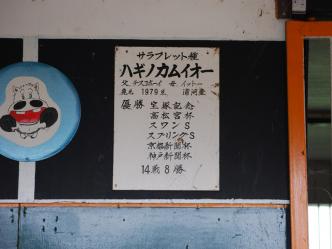 サラブレット種
ハギノカムイオー
父 テスコボーイ 母 イットー
鹿毛 1979生 浦河産
優勝 宝塚記念
高松宮杯
スワンS
スプリングS
京都新聞杯
神戸新聞杯
14戦8勝